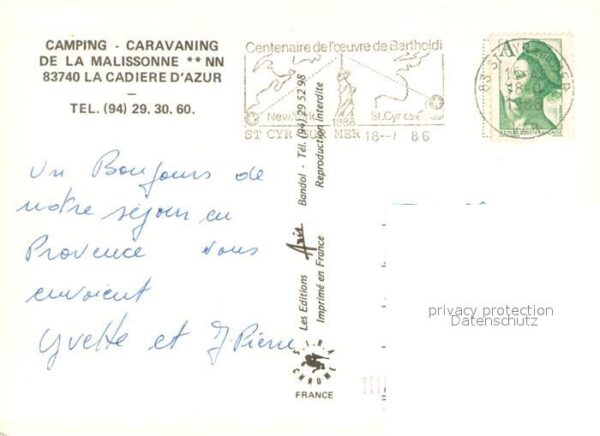 CAMPING - CARAVANING
DE LA MALISSONNE ** NN
83740 LA CADIERE D'AZUR
TEL. (94) 29. 30. 60.
Centenaire de l'œuvre de Bartholdi
1886
St.Cyr
ST CYR SUR MER 18-- 86
A
REPUBLIQUE FRANÇAISE
Un Bonjours de
notre séjour en
Provence vous
envoient
Yvette et J Pierre
Les Editions Aris Bandol - Tél. (94) 29 52 98
Imprimé en France Reproduction interdite
S.I.R.A. CHROME
FRANCE
privacy protection
Datenschutz